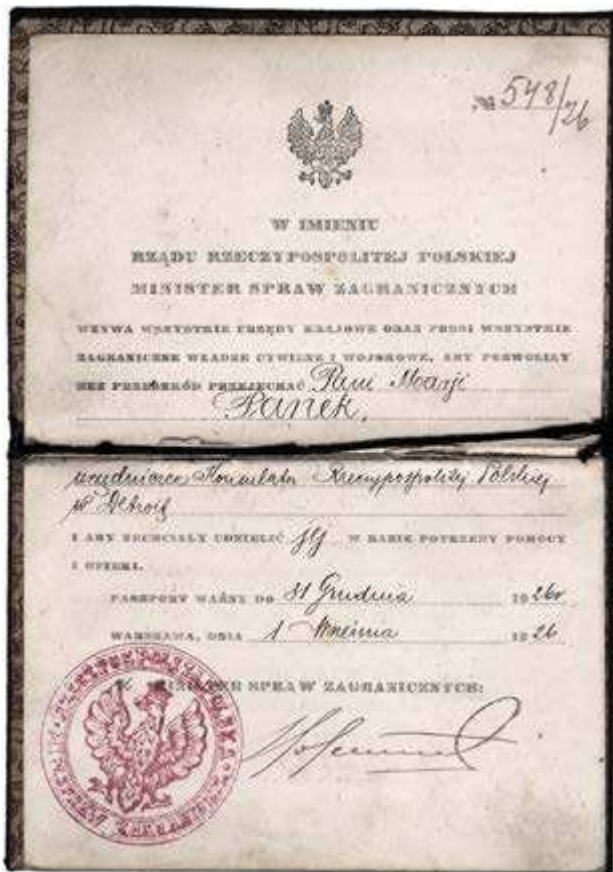 № 548/26
W IMIENIU
RZĄDU RZECZYPOSPOLITEJ POLSKIEJ
MINISTER SPRAW ZAGRANICZNYCH
WZYWA WSZYSTKIE URZĘDY KRAJOWE ORAZ PROSI WSZYSTKIE
ZAGRANICZNE WŁADZE CYWILNE I WOJSKOWE, ABY POZWOLIŁY
BEZ PRZESZKÓD PRZEJECHAĆ Pani Marji
Panek,
urzędniczce Konsulatu Rzeczypospolitej Polskiej
w Detroit
I ABY ZECHCIAŁY UDZIELIĆ jej W RAZIE POTRZEBY POMOCY
I OPIEKI.
PASZPORT WAŻNY DO 31 Grudnia 1926r
WARSZAWA, DNIA 1 Września 1926
MINISTER SPRAW ZAGRANICZNYCH: